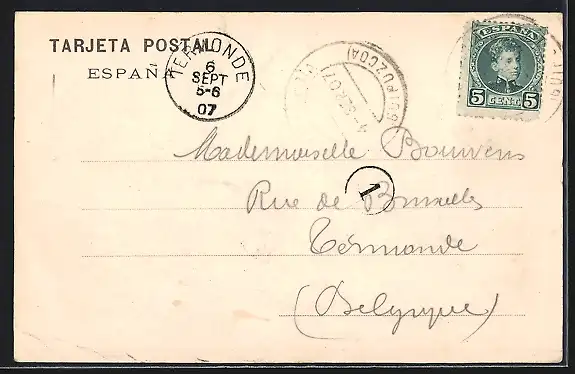 TARJETA POSTAL
ESPAÑA
TERMONDE
6
SEPT
5-6
07
(GUIPUZCOA)
4-SEP.07
ESPAÑA
5 CENT. 5
Mademoiselle Bouvens
1
Rue de Bruxelles
Termonde
(Belgique)